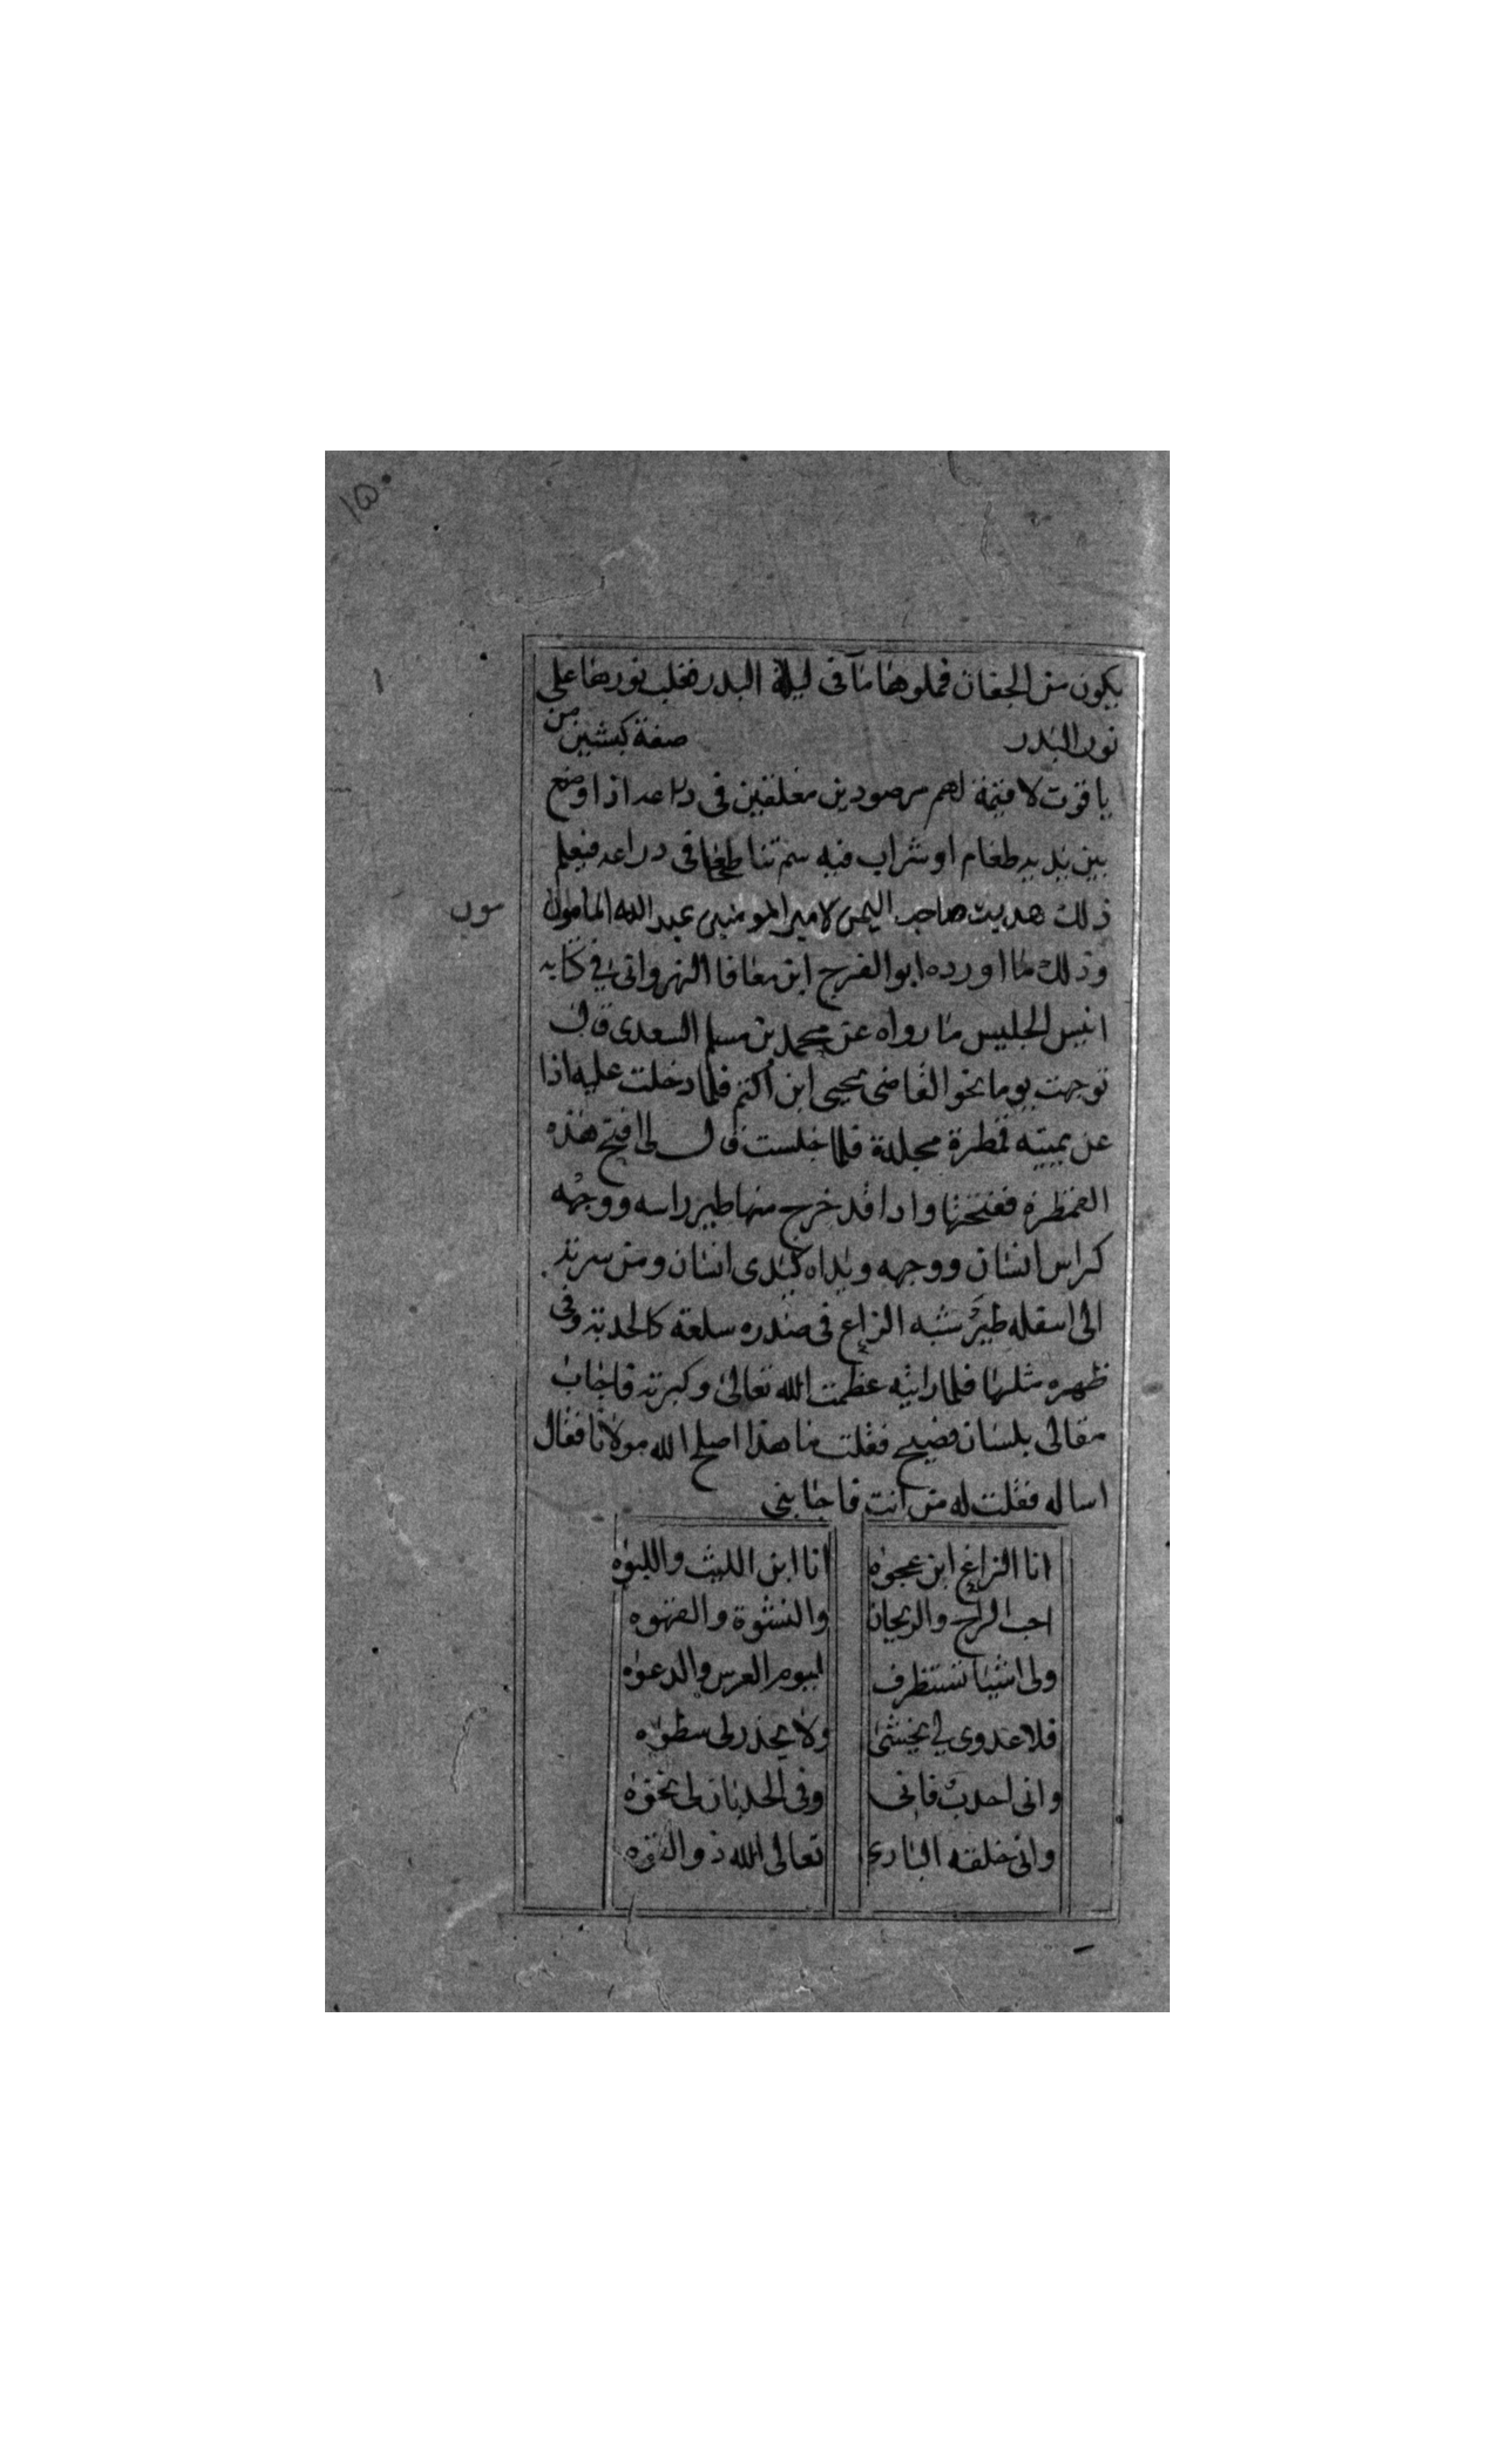 ١٥٠
يكون من الجفان فملوها مآ فى ليلة البدر فغلب نورها على
نور البدر صفة كبشين من
ياقوت لا قيمة لهم مرصودين معلقين فى دراعه اذا وضع
بين يديه طعام او شراب فيه سم تناطحا فى دراعه فيعلم
ذلك هديت صاحب اليمن لامير المومنين عبد الله المامون
وذلك ما اورده ابو الفرج ابن معافا النهروانى في كتابه
انيس الجليس ما رواه عن محمد بن مسلم السعدى قال
توجهت يوما نحو القاضى يحيى ابن اكتم فلما دخلت عليه اذا
عن يمينه قمطرة مجلدة فلما جلست قال لى افتح هذه
القمطرة ففتحتها واذا قد خرج منها طير راسه ووجهه
كراس انسان ووجهه ويداه كيدى انسان ومن سرته
الى اسفله طير شبه الزاغ فى صدره سلعة كالحدبة وفى
ظهره مثلها فلما رايته عظمت الله تعالى وكبرته فاجاب
مقالى بلسان فصيح فقلت ما هذا اصلح الله مولانا فقال
اساله فقلت له من انت فاجابنى
انا الزاغ ابن عجوه انا ابن الليث والليوه
احب الراح والريحان والنشوة والقهوه
ولى اشيا تستظرف ليوم العرس والدعوه
فلا عدوى لي يخشى ولا يحذر لى سطوه
وانى احدب فانى وفى الحدبان لى نخوه
وانى خلقه البارئ تعالى الله ذو القوه